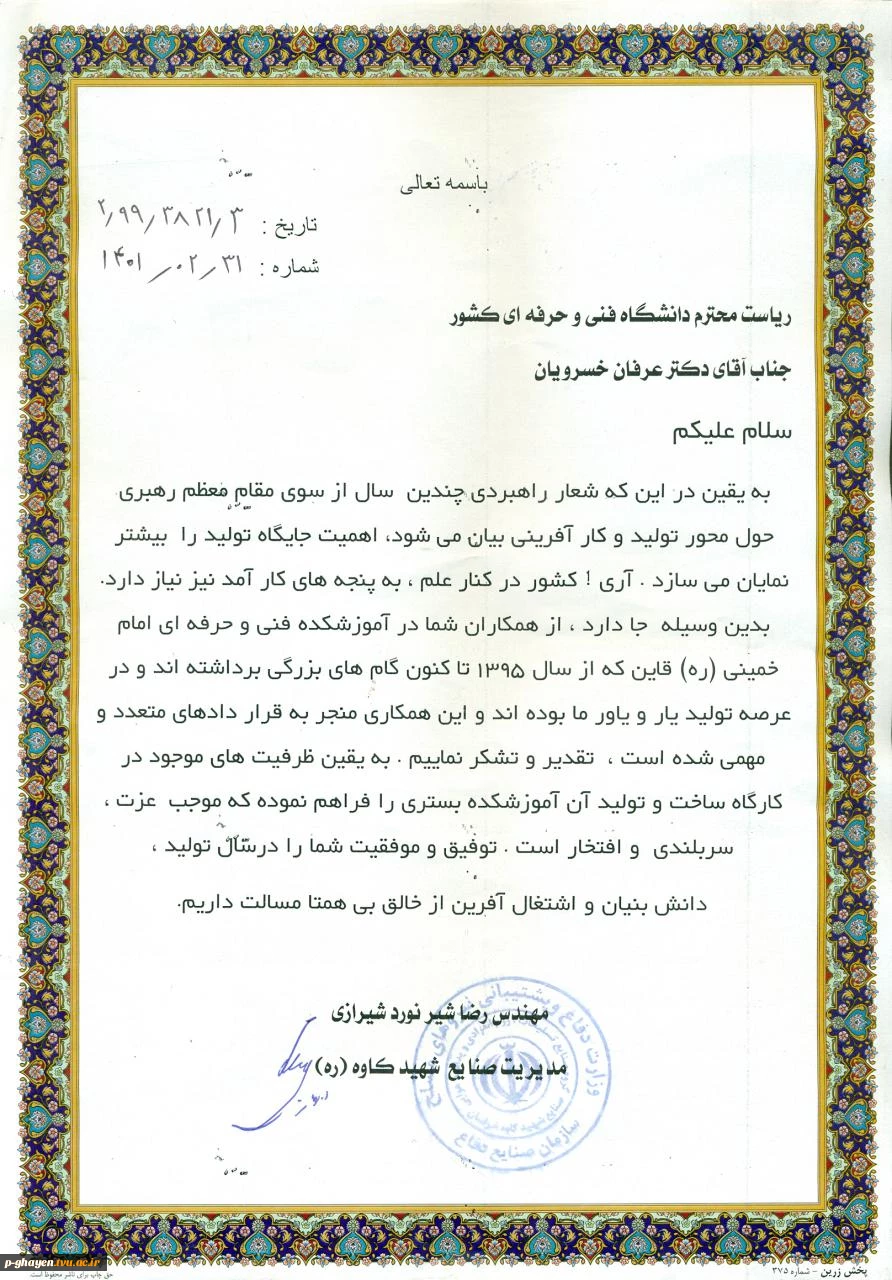 باسمه تعالی
تاریخ : ۲٫۹۹٫۳۸۲۱٫۳
شماره : ۱۴۰۱٫۰۲٫۳۱
ریاست محترم دانشگاه فنی و حرفه ای کشور
جناب آقای دکتر عرفان خسرویان
سلام علیکم
به یقین در این که شعار راهبردی چندین سال از سوی مقام معظم رهبری
حول محور تولید و کار آفرینی بیان می شود، اهمیت جایگاه تولید را بیشتر
نمایان می سازد . آری ! کشور در کنار علم ، به پنجه های کار آمد نیز نیاز دارد.
بدین وسیله جا دارد ، از همکاران شما در آموزشکده فنی و حرفه ای امام
خمینی (ره) قاین که از سال ۱۳۹۵ تا کنون گام های بزرگی برداشته اند و در
عرصه تولید یار و یاور ما بوده اند و این همکاری منجر به قرار دادهای متعدد و
مهمی شده است ، تقدیر و تشکر نماییم . به یقین ظرفیت های موجود در
کارگاه ساخت و تولید آن آموزشکده بستری را فراهم نموده که موجب عزت ،
سربلندی و افتخار است . توفیق و موفقیت شما را درسال تولید ،
دانش بنیان و اشتغال آفرین از خالق بی همتا مسالت داریم.
مهندس رضا شیر نورد شیرازی
مدیریت صنایع شهید کاوه (ره)
وزارت دفاع و پشتیبانی نیروهای مسلح
سازمان صنایع دفاع
p-ghayen.tvu.ac.ir
حق چاپ برای ناشر محفوظ است.
پخش زرین - شماره ۳۷۵